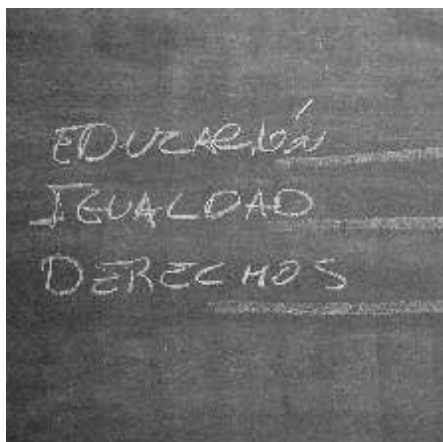 EDUCACIÓN
IGUALDAD
DERECHOS